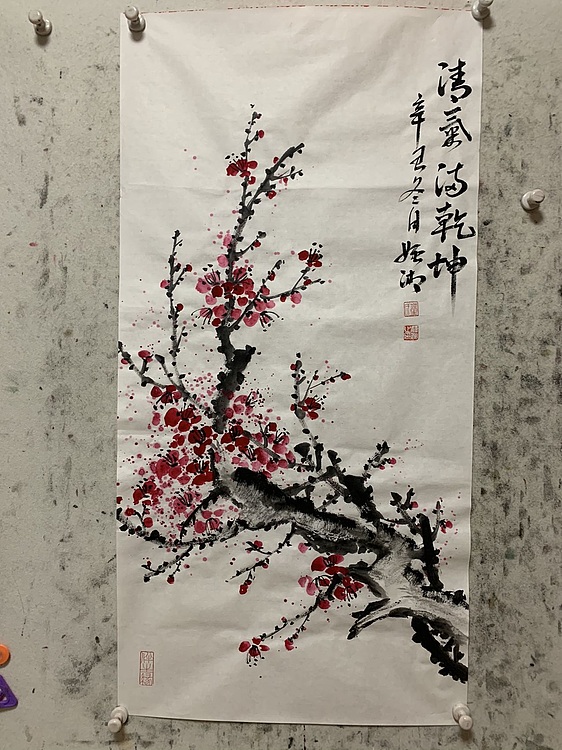 清氣滿乾坤
辛丑冬月